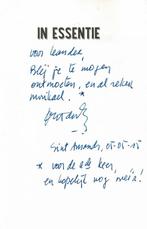 IN ESSENTIE
voor Leander,
Blij je te mogen
ontmoeten, en al zeker
muzikaal. *
Sint Amands, 05-05-15
* voor de 2de keer,
en hopelijk nog meer!